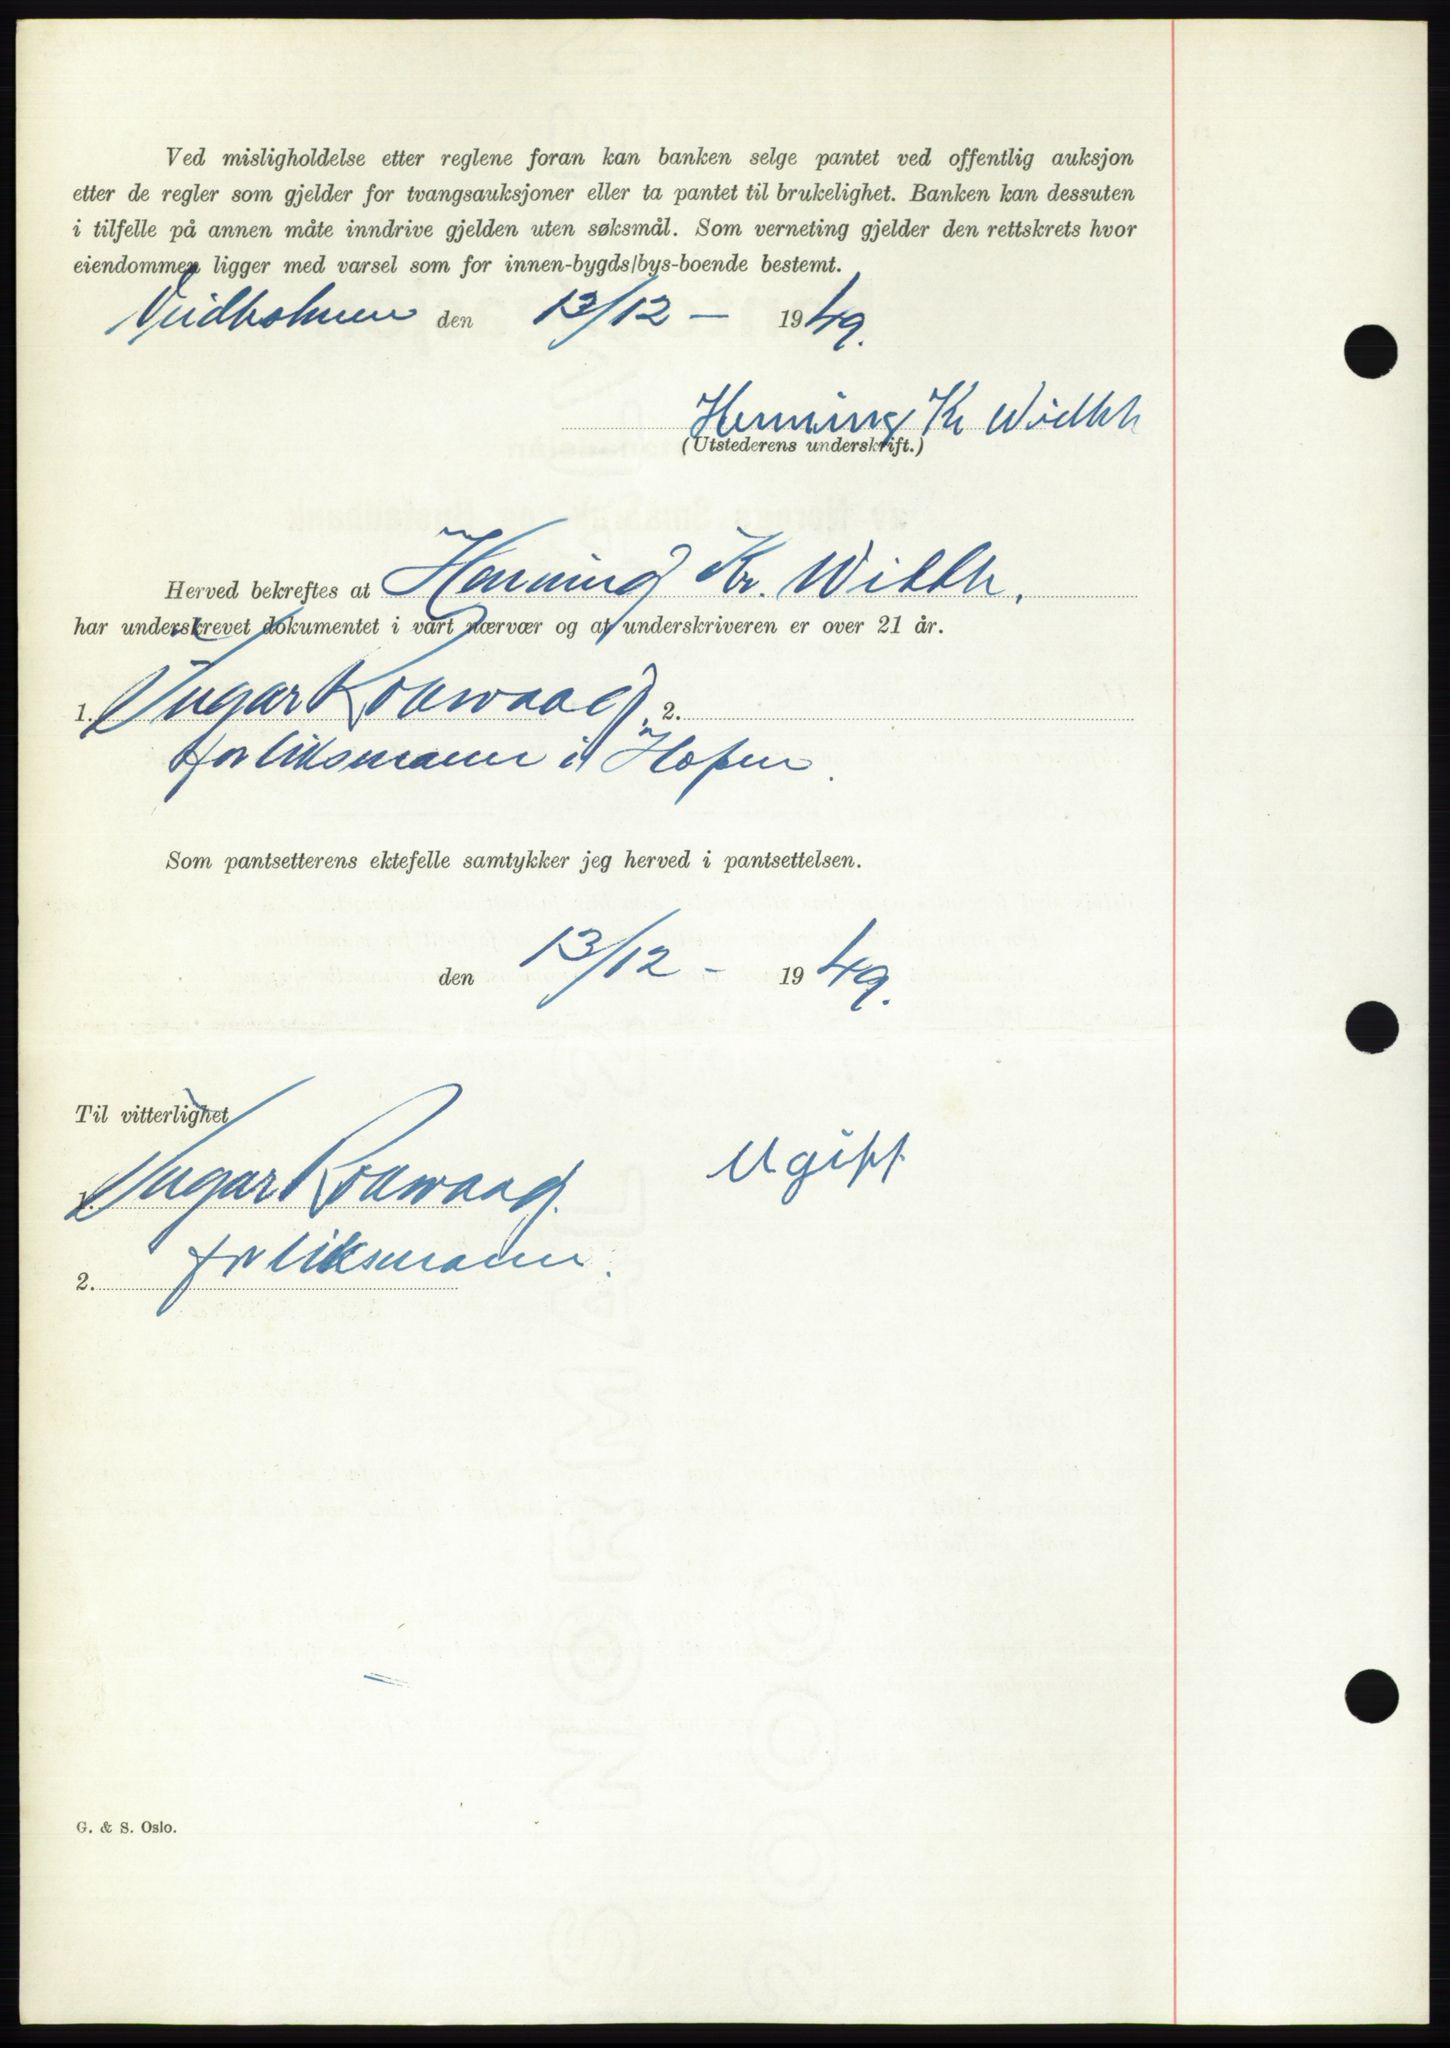 Ved misligholdelse etter reglene foran kan banken selge pantet ved offentlig auksjon
etter de regler som gjelder for tvangsauksjoner eller ta pantet til brukelighet. Banken kan dessuten
i tilfelle på annen måte inndrive gjelden uten søksmål. Som verneting gjelder den rettskrets hvor
eiendommen ligger med varsel som for innen-bygds/bys-boende bestemt.
Veidholmen den 13/12 - 1949.
Henning Kr
(Utstederens underskrift.)
Herved bekreftes at Henning Kr.
har underskrevet dokumentet i vårt nærvær og at underskriveren er over 21 år.
1. 2.
forliksmann i Hopen.
Som pantsetterens ektefelle samtykker jeg herved i pantsettelsen.
den 13/12 - 1949.
Til vitterlighet
1. Ugift
forliksmann.
2.
G. & S. Oslo.